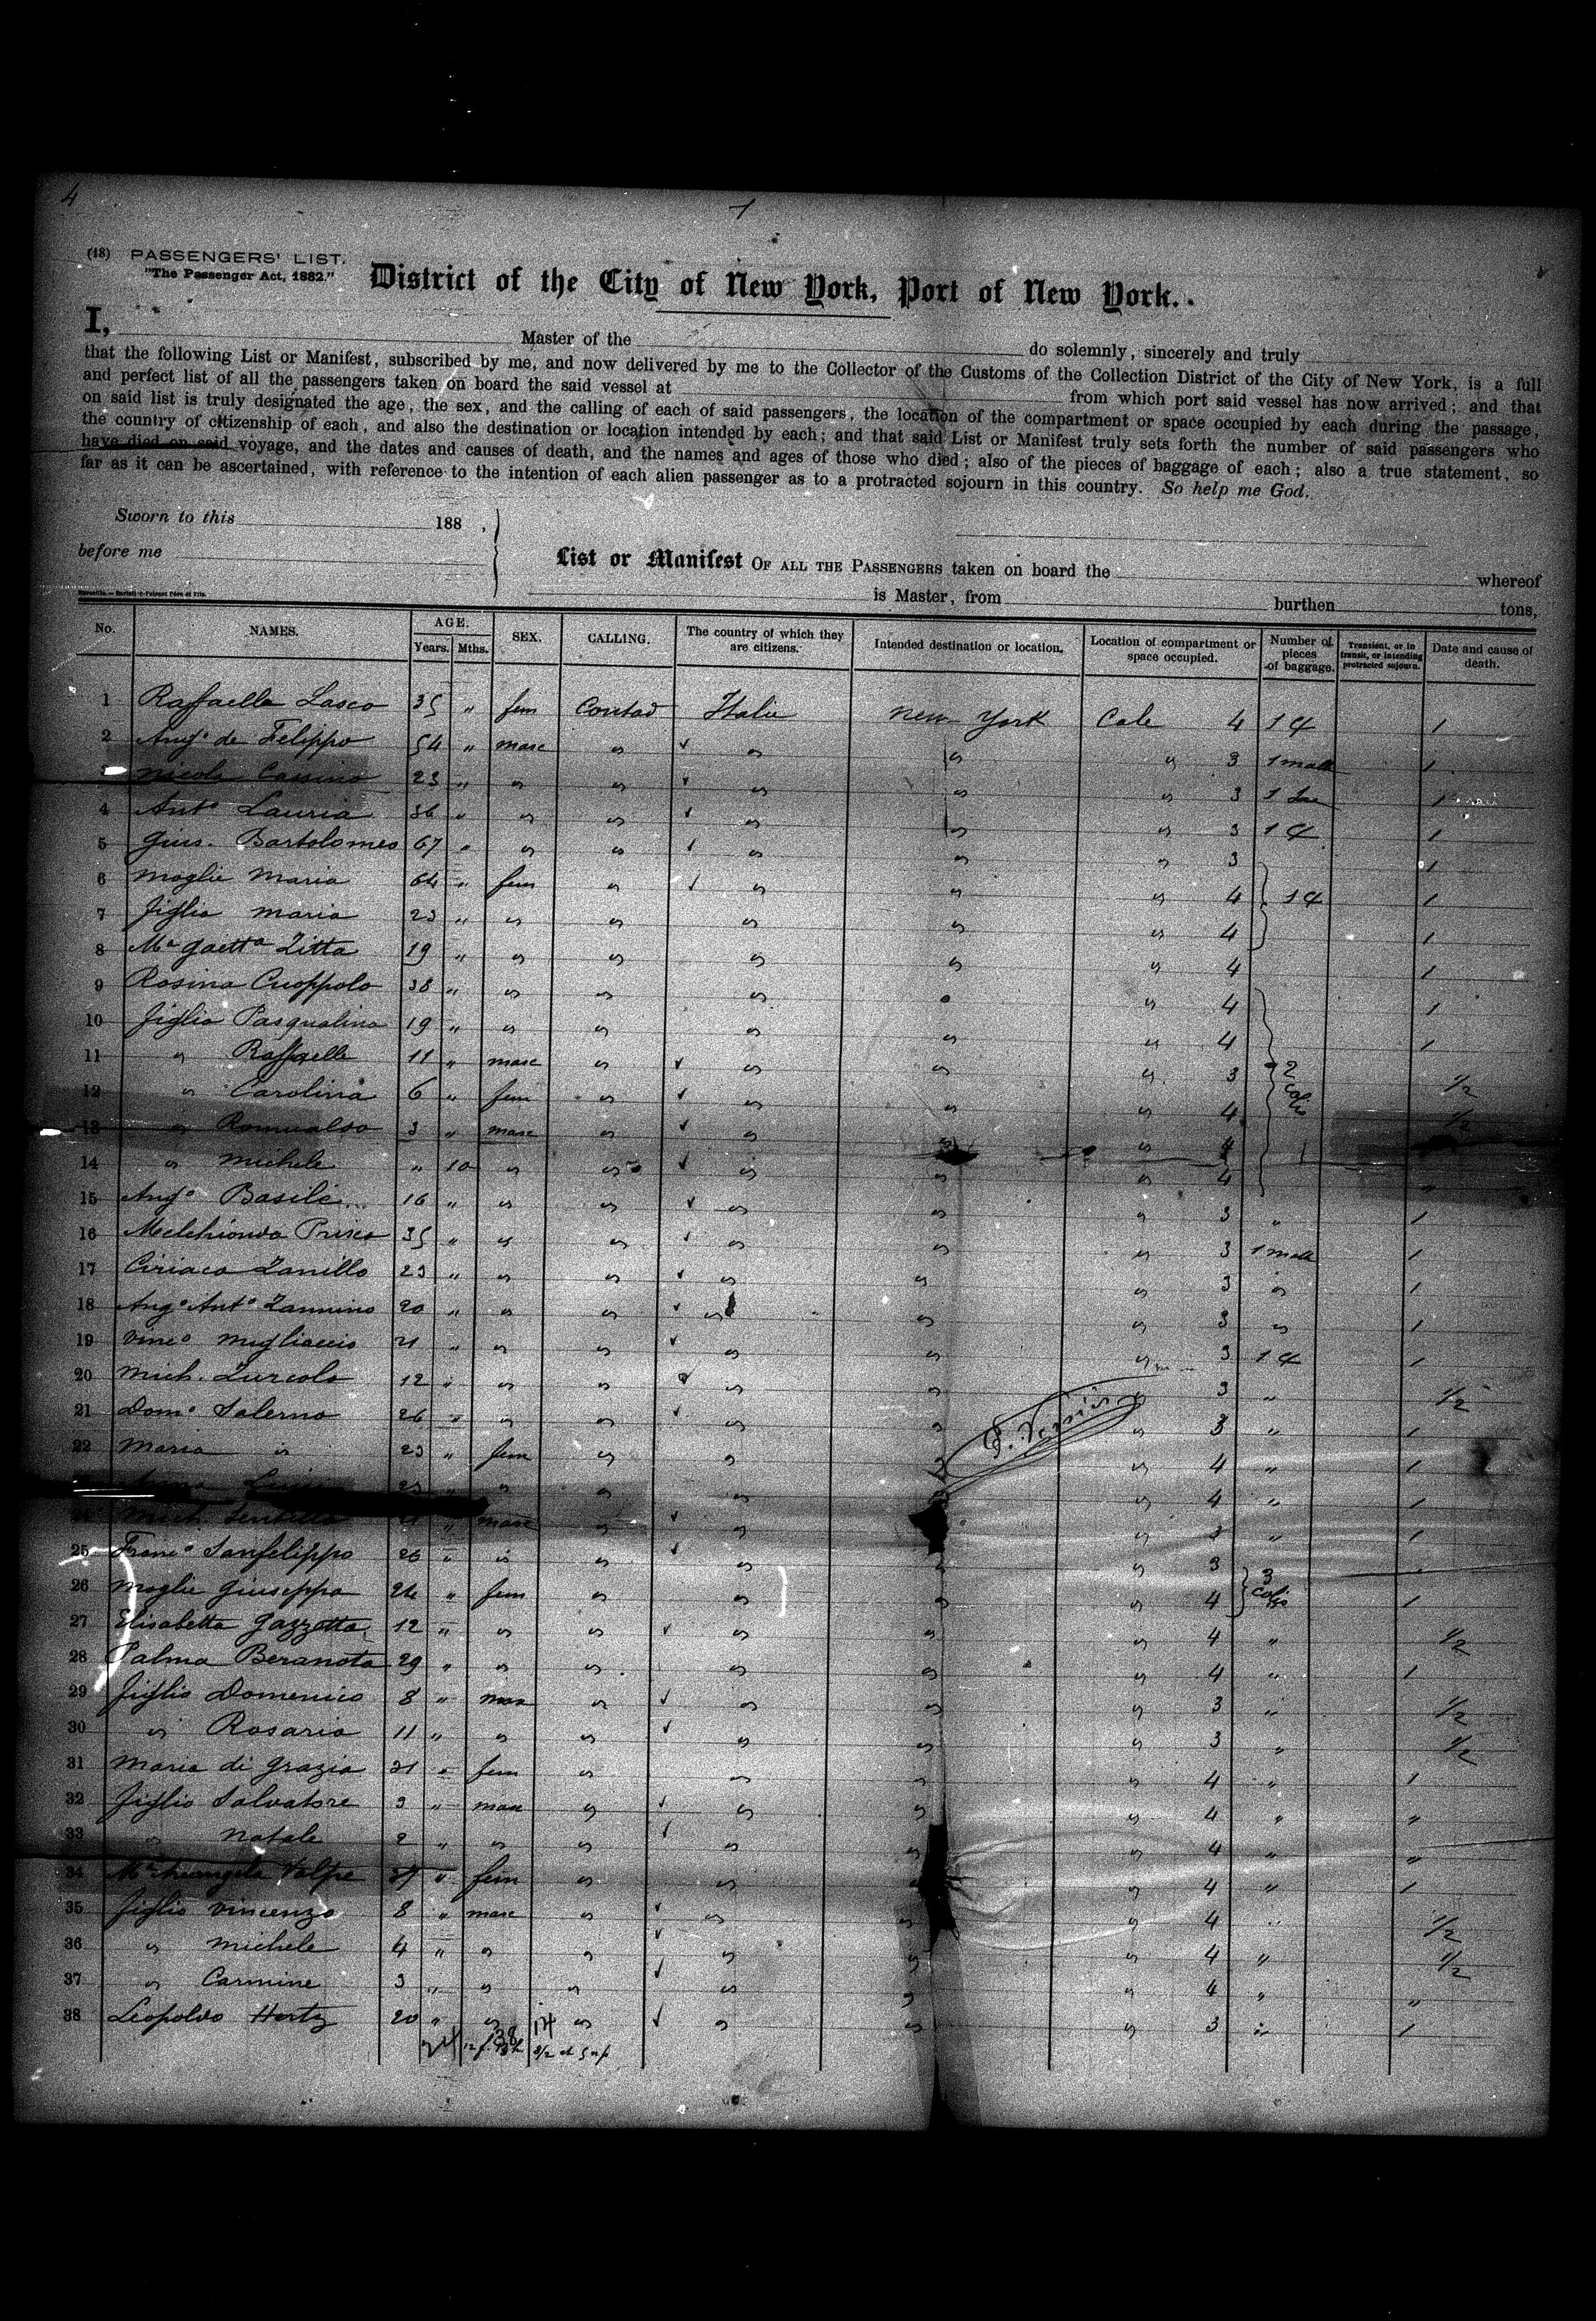 4
1
(18) PASSENGERS' LIST.
"The Passenger Act, 1882."
District of the City of New York, Port of New York.
I, Master of the do solemnly, sincerely and truly
that the following List or Manifest, subscribed by me, and now delivered by me to the Collector of the Customs of the Collection District of the City of New York, is a full
and perfect list of all the passengers taken on board the said vessel at from which port said vessel has now arrived; and that
on said list is truly designated the age, the sex, and the calling of each of said passengers, the location of the compartment or space occupied by each during the passage,
the country of citizenship of each, and also the destination or location intended by each; and that said List or Manifest truly sets forth the number of said passengers who
have died on said voyage, and the dates and causes of death, and the names and ages of those who died; also of the pieces of baggage of each; also a true statement, so
far as it can be ascertained, with reference to the intention of each alien passenger as to a protracted sojourn in this country. So help me God.
Sworn to this 188 ,
before me
List or Manifest OF ALL THE PASSENGERS taken on board the whereof
is Master, from burthen tons,
No. NAMES. AGE. Years. Mths. SEX. CALLING. The country of which they are citizens. Intended destination or location. Location of compartment or space occupied. Number of pieces of baggage. Transient, or in transit, or intending protracted sojourn. Date and cause of death.
1 Raffaella Lasco 35 " fem Contad Italie New York Cale 4 1 1
2 Angº de Felippo 54 " masc " " " " 3 1 malle 1
3 Nicola Cassino 23 " " " " " " 3 1 1
4 Antº Lauria 36 " " " " " " 3 1 1
5 Gius. Bartolomeo 67 " " " " " " 3 1
6 Moglie Maria 64 " fem " " " " 4 1 1
7 figlia Maria 23 " " " " " " 4 1
8 Mª Gaettª Zitta 19 " " " " " " 4 1
9 Rosina Cuoppolo 38 " " " " " " 4 1
10 figlia Pasqualina 19 " " " " " " 4 1
11 " Raffaelle 11 " masc " " " " 3 2 colis 1/2
12 " Carolina 6 " fem " " " " 4 1/2
13 " Romualdo 3 " masc " " " " 4
14 " Michele " 10 " " " " " 4 "
15 Angº Basile 16 " " " " " " 3 " 1
16 Melchionda Prisco 35 " " " " " " 3 1 malle 1
17 Ciriaco Zanillo 23 " " " " " " 3 " 1
18 Angº Antº Zannino 20 " " " " " " 3 " 1
19 Vincº Migliaccio 21 " " " " " " 3 1 1
20 Mich. Zurcolo 12 " " " " " " 3 " 1/2
21 Domº Salerno 26 " " " " " " 3 " 1
22 Maria " 23 " fem " " " " 4 " 1
" " " " " 4 " 1
24 Mich. " masc " " " " 3 " 1
25 Francº Sanfelippo 26 " " " " " " 3
26 Moglie Giuseppa 24 " fem " " " " 4 3 colis 1
27 Elisabetta Gazzetta 12 " " " " " " 4 " 1/2
28 Palma Beranota 29 " " " " " " 4 " 1
29 figlio Domenico 8 " mas " " " " 3 " 1/2
30 " Rosario 11 " " " " " " 3 " 1/2
31 Maria di Grazia 31 " fem " " " " 4 " 1
32 figlio Salvatore 3 " masc " " " " 4 " "
33 " Natale 2 " " " " " " 4 " "
34 Mª Volpe 37 " fem " " " " 4 " 1
35 figlio Vincenzo 8 " masc " " " " 4 " 1/2
36 " Michele 4 " " " " " " 4 " 1/2
37 " Carmine 3 " " " " " " 4 " "
38 Leopoldo Hertz 20 " " " " " " 3 " 1
38 14